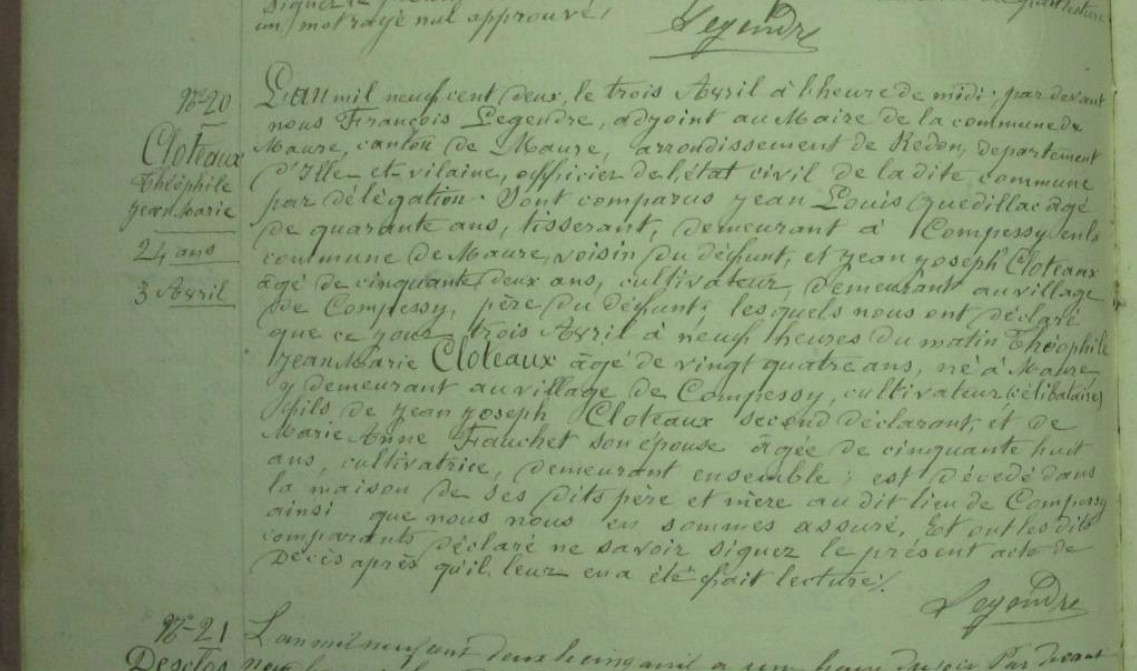 un mot rayé nul approuvé /
Legendre
N° 20
Cloteaux
Théophile
Jean Marie
24 ans
3 Avril
L'an mil neuf cent deux, le trois Avril à l'heure de midi, par devant
nous François Legendre, adjoint au Maire de la commune de
Maure, canton de Maure, arrondissement de Redon, département
d'Ille-et-vilaine, officier de l'état civil de la dite commune
par délégation. Sont comparus Jean Louis Quedillac âgé
de quarante ans, tisserant, demeurant à Compessy en la
commune de Maure, voisin du défunt, et Jean Joseph Cloteaux
âgé de cinquante deux ans, cultivateur, demeurant au village
de Compessy, père du défunt, lesquels nous ont déclaré
que ce jour trois Avril à neuf heures du matin Théophile
Jean Marie Cloteaux âgé de vingt quatre ans, né à Maure
y demeurant au village de Compessy, cultivateur (célibataire)
fils de Jean Joseph Cloteaux second déclarant, et de
Marie Anne Fauchet son épouse âgée de cinquante huit
ans, cultivatrice, demeurant ensemble ; est décédé dans
la maison de ses dits père et mère au dit lieu de Compessy
ainsi que nous nous en sommes assuré. Et ont les dits
comparants déclaré ne savoir signer le présent acte de
Décès après qu'il leur en a été fait lecture /.
Legendre
N° 21
L'an mil neuf cent deux le cinq avril a une heure du soir Par devant